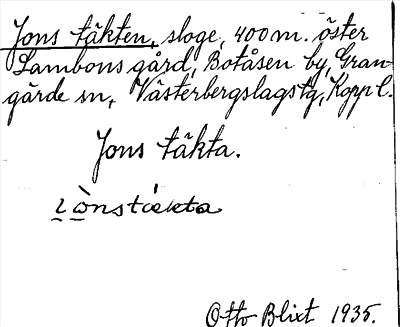 Jons täkten, sloge, 400 m. öster
Lambons gård, Botåsen by, Gran-
gärde sn, Västerbergslags tg, Koppl.
Jons täkta.
Otto Blixt 1935.